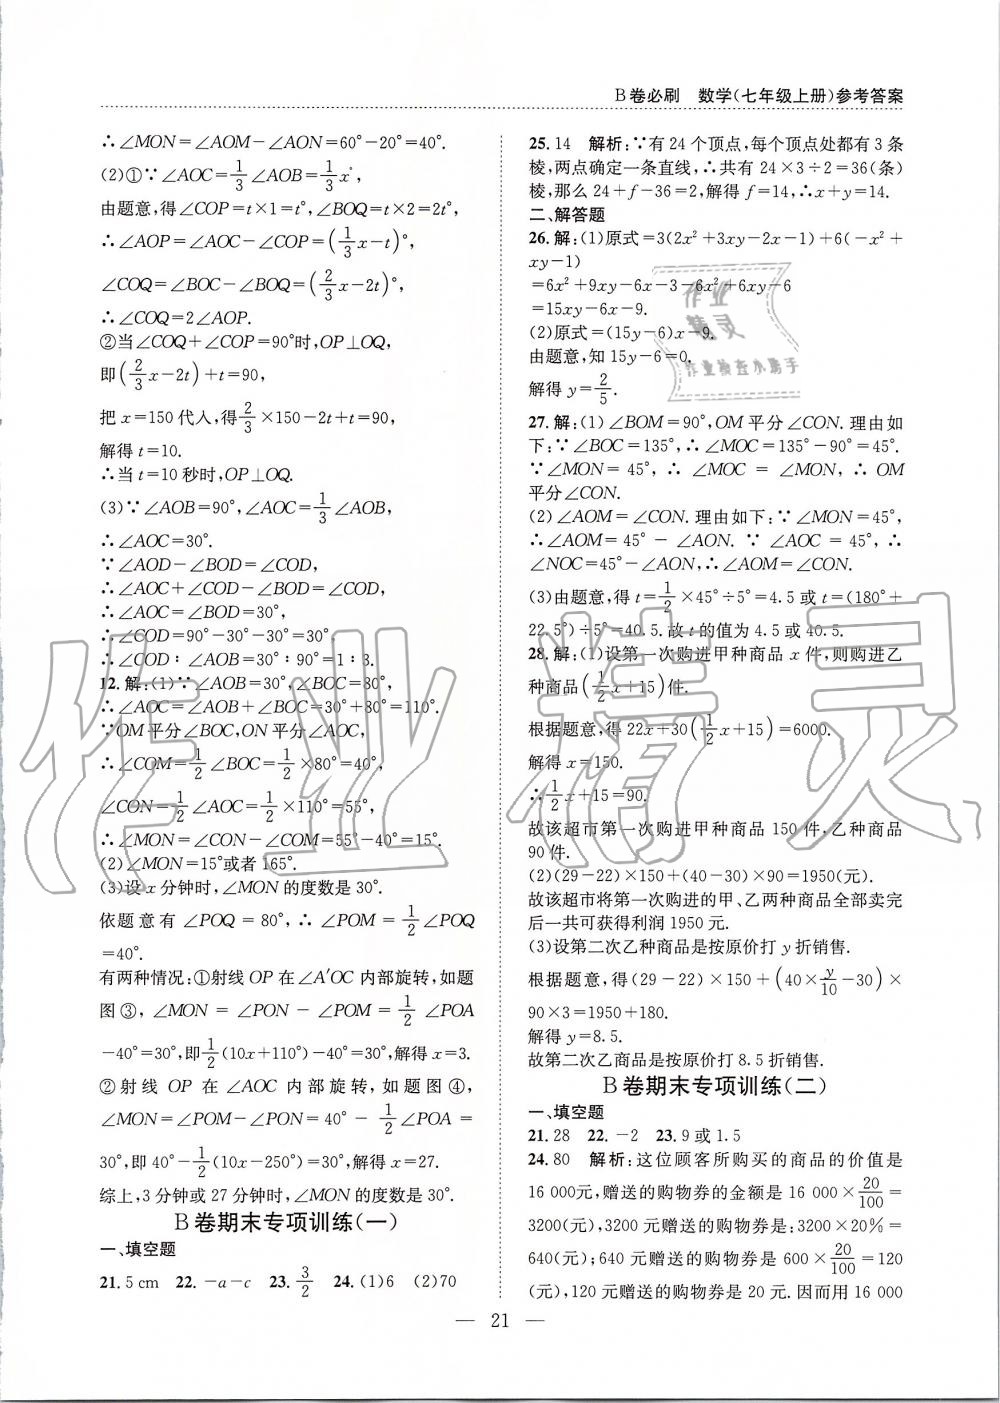 B卷必刷 数学(七年级上册)参考答案
∴∠MON=∠AOM-∠AON=60°-20°=40°.
(2)①∵∠AOC=1/3∠AOB=1/3x°,
由题意,得∠COP=t×1=t°,∠BOQ=t×2=2t°,
∴∠AOP=∠AOC-∠COP=(1/3x-t)°,
∠COQ=∠BOC-∠BOQ=(2/3x-2t)°,
∴∠COQ=2∠AOP.
②当∠COQ+∠COP=90°时,OP⊥OQ,
即(2/3x-2t)+t=90,
把x=150代人,得2/3×150-2t+t=90,
解得t=10.
∴当t=10秒时,OP⊥OQ.
(3)∵∠AOB=90°,∠AOC=1/3∠AOB,
∴∠AOC=30°.
∵∠AOD-∠BOD=∠COD,
∴∠AOC+∠COD-∠BOD=∠COD,
∴∠AOC=∠BOD=30°,
∴∠COD=90°-30°-30°=30°,
∴∠COD∶∠AOB=30°∶90°=1∶3.
12.解:(1)∵∠AOB=30°,∠BOC=80°,
∴∠AOC=∠AOB+∠BOC=30°+80°=110°.
∵OM平分∠BOC,ON平分∠AOC,
∴∠COM=1/2∠BOC=1/2×80°=40°,
∠CON=1/2∠AOC=1/2×110°=55°,
∴∠MON=∠CON-∠COM=55°-40°=15°.
(2)∠MON=15°或者165°.
(3)设x分钟时,∠MON的度数是30°.
依题意有∠POQ=80°,∴∠POM=1/2∠POQ
=40°.
有两种情况:①射线OP在∠A′OC内部旋转,如题
图③,∠MON=∠PON-∠POM=1/2∠POA
-40°=30°,即1/2(10x+110°)-40°=30°,解得x=3.
②射线OP在∠AOC内部旋转,如题图④,
∠MON=∠POM-∠PON=40°-1/2∠POA=
30°,即40°-1/2(10x-250°)=30°,解得x=27.
综上,3分钟或27分钟时,∠MON的度数是30°.
B卷期末专项训练(一)
一、填空题
21.5 cm 22.-a-c 23.3/2 24.(1)6 (2)70
25.14 解析:∵有24个顶点,每个顶点处都有3条
棱,两点确定一条直线,∴共有24×3÷2=36(条)
棱,那么24+f-36=2,解得f=14,∴x+y=14.
二、解答题
26.解:(1)原式=3(2x²+3xy-2x-1)+6(-x²+
xy-1)
=6x²+9xy-6x-3-6x²+6xy-6
=15xy-6x-9.
(2)原式=(15y-6)x-9.
由题意,知15y-6=0,
解得y=2/5.
27.解:(1)∠BOM=90°,OM平分∠CON.理由如
下:∵∠BOC=135°,∴∠MOC=135°-90°=45°.
∵∠MON=45°,∴∠MOC=∠MON,∴OM
平分∠CON.
(2)∠AOM=∠CON.理由如下:∵∠MON=45°,
∴∠AOM=45°-∠AON.∵∠AOC=45°,∴
∠NOC=45°-∠AON,∴∠AOM=∠CON.
(3)由题意,得t=1/2×45°÷5°=4.5或t=(180°+
22.5°)÷5°=40.5.故t的值为4.5或40.5.
28.解:(1)设第一次购进甲种商品x件,则购进乙
种商品(1/2x+15)件.
根据题意,得22x+30(1/2x+15)=6000.
解得x=150.
∴1/2x+15=90.
故该超市第一次购进甲种商品150件,乙种商品
90件.
(2)(29-22)×150+(40-30)×90=1950(元).
故该超市将第一次购进的甲、乙两种商品全部卖完
后一共可获得利润1950元.
(3)设第二次乙种商品是按原价打y折销售.
根据题意,得(29-22)×150+(40×y/10-30)×
90×3=1950+180.
解得y=8.5.
故第二次乙商品是按原价打8.5折销售.
B卷期末专项训练(二)
一、填空题
21.28 22.-2 23.9或1.5
24.80 解析:这位顾客所购买的商品的价值是
16 000元,赠送的购物券的金额是16 000×20/100=
3200(元),3200元赠送的购物券是:3200×20%=
640(元);640元赠送的购物券是600×20/100=120
(元),120元赠送的购物券是20元.因而用16 000
— 21 —
作业精灵
作业
精灵
作业检查小助手